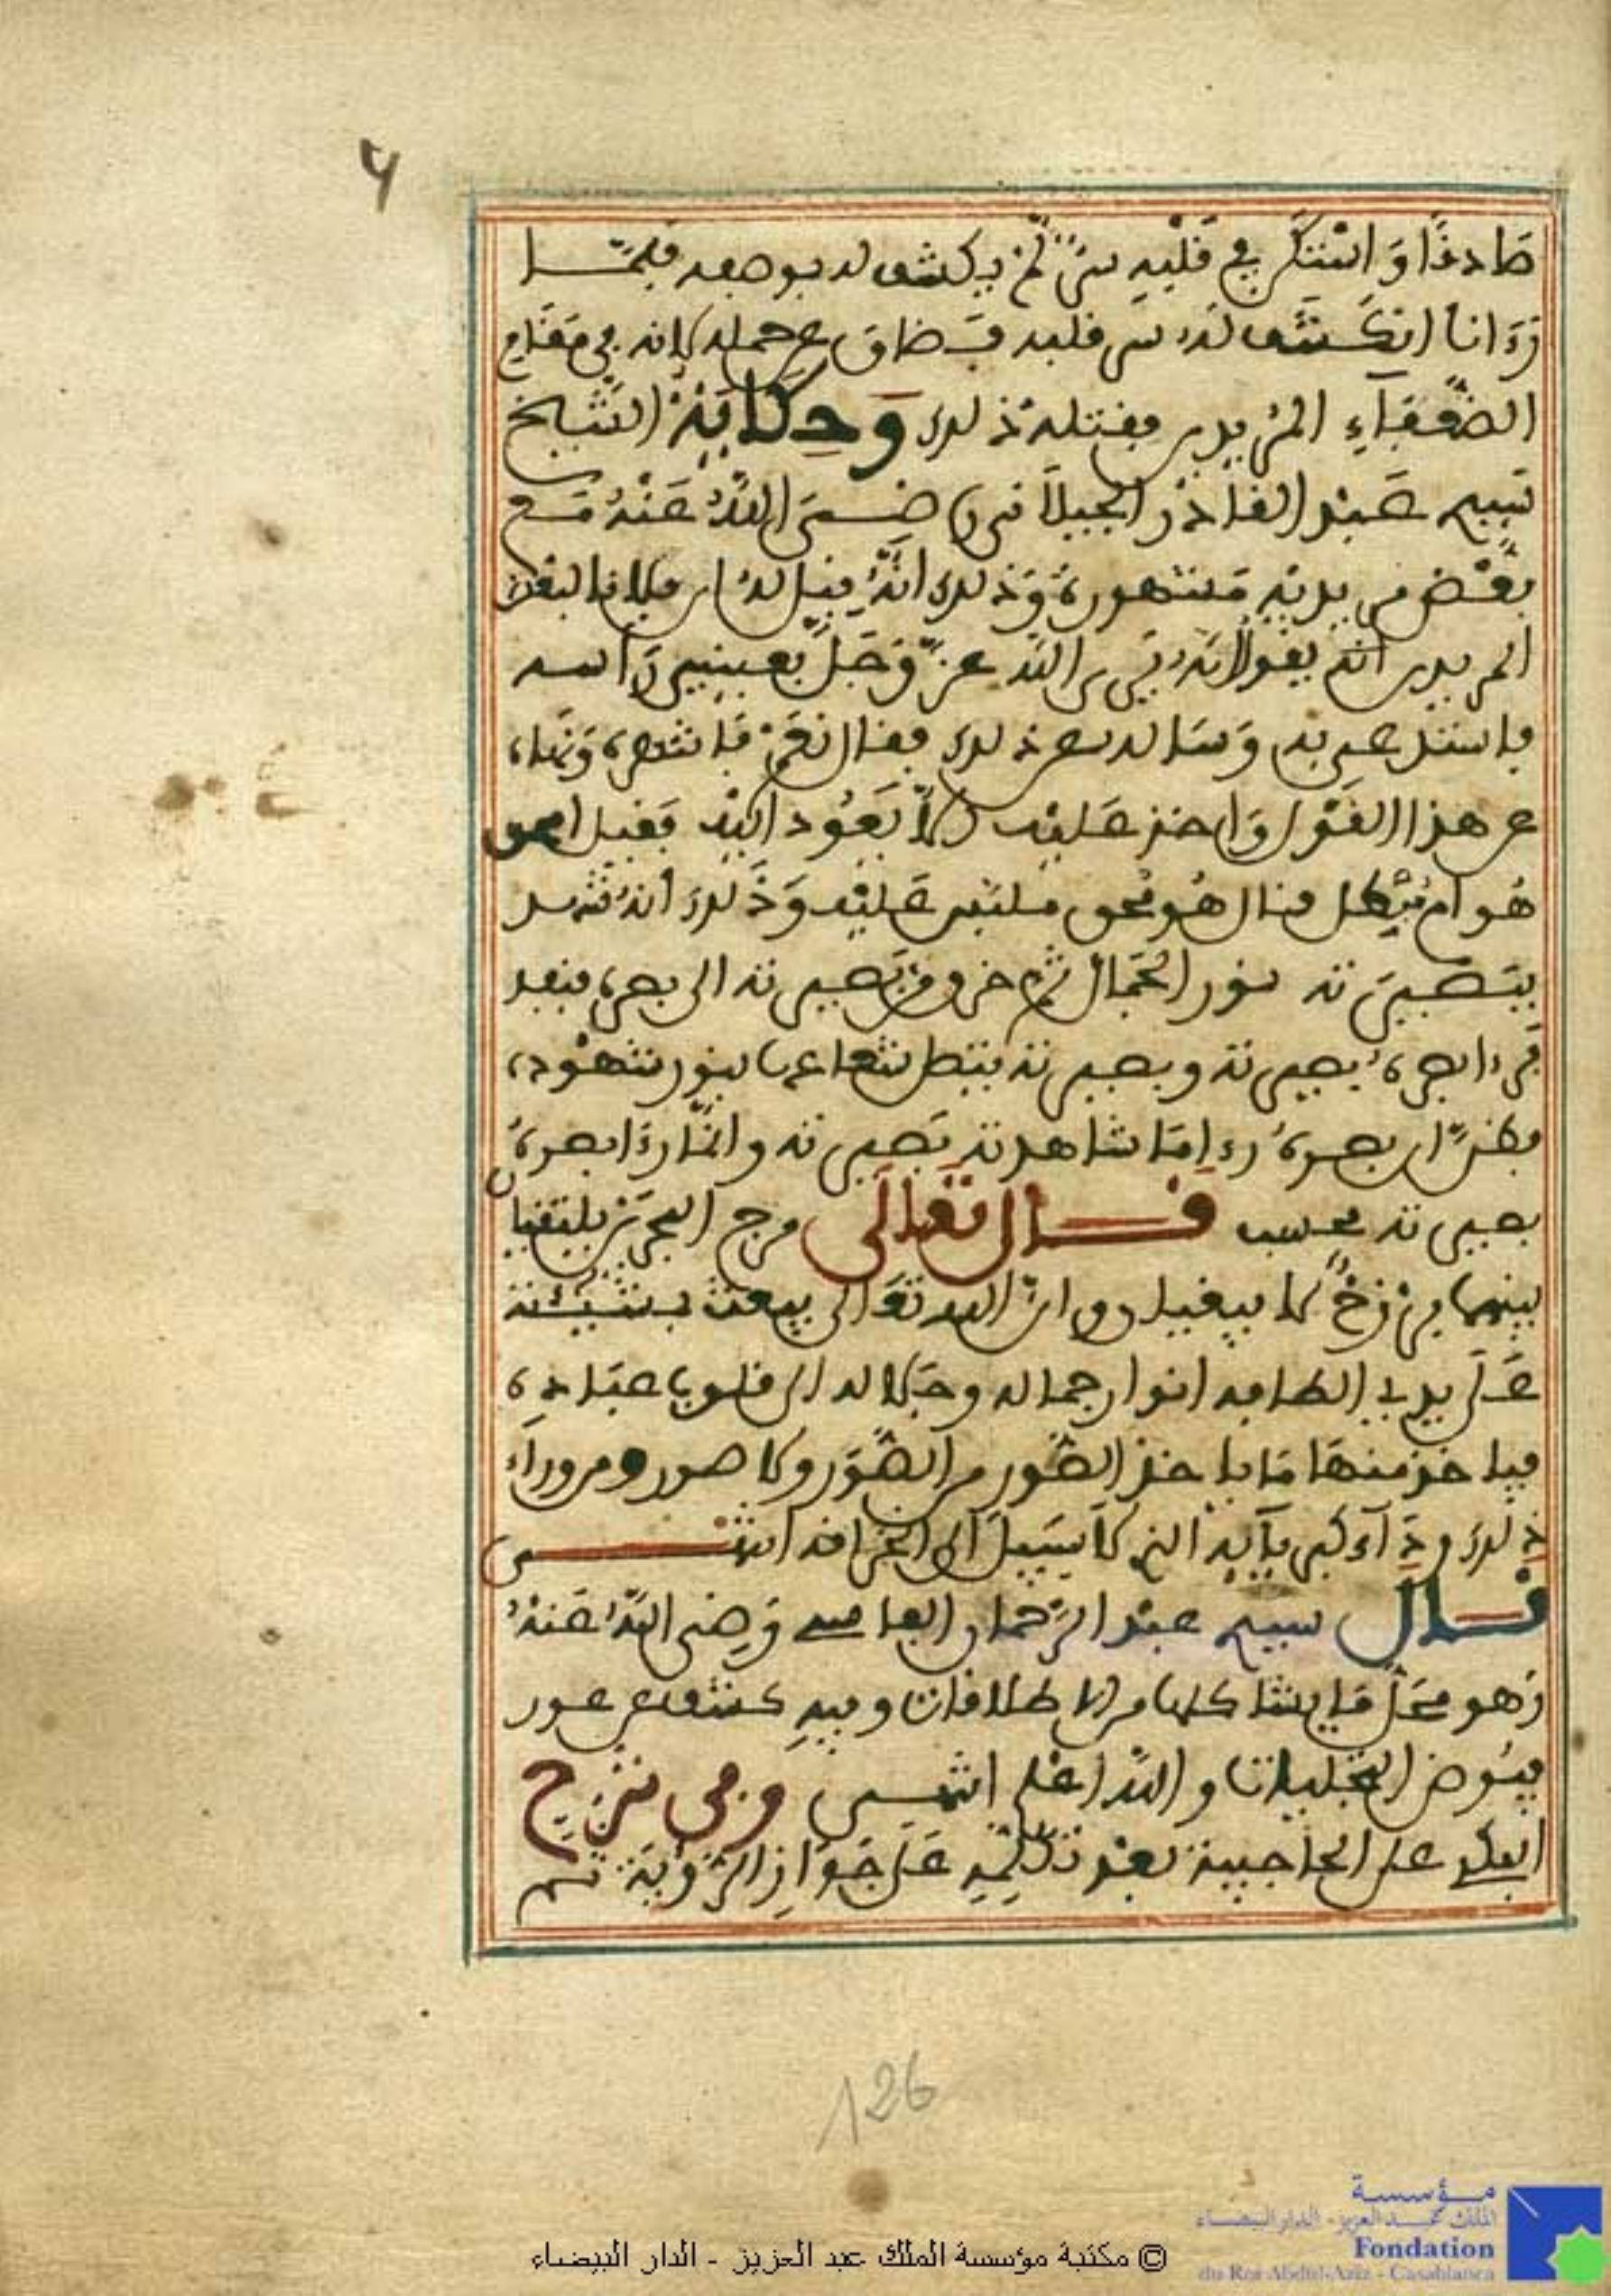 6
صادقا واستتر في قلبه سر لم ينكشف له بوصفه فلما
رءانا انكشف له سر قلبه فضاق عن حمله لانه في مقام
الضعفاء المريدين فقتله ذلك وحكاية الشيخ
سيدي عبد القادر الجيلاني رضي الله عنه مع
بعض مريديه مشهورة وذلك انه قيل له ان فلانا لبعض
المريدين انه يقول انه يرى الله عز وجل بعيني رأسه
فاستدعى به وساله عن ذلك فقال نعم فانتهره ونهاه
عن هذا القول واخذ عليه ان لا يعود اليه فقيل امحق
هو ام مبطل فقال هو محق ملتبس عليه وذلك انه شهد
ببصيرته نور الجمال ثم خرق من بصيرته الى بصره منفذ
فرءا بصره بصيرته وبصيرته يتصل شعاعها بنور شهوده
فظن ان بصره رءا ما شاهدته بصيرته وانما رءا بصره
بصيرته فحسب قال تعالى مرج البحرين يلتقيان
بينهما برزخ لا يبغيان وان الله تعالى يبعث بمشيئته
على يدي الطافه انوار جماله وجلاله الى قلوب عباده
فياخذ منها ما ياخذ الصور من الصور ولا صور ومن وراء
ذلك رداء كبريائه الذي لا سبيل الى انخراقه انتهى
قال سيدي عبد الرحمان الفاسي رضي الله عنه
وهو محل ما ينشا كلها من الاطلاقات وفيه كشف عن عور
فيوض التجليات والله اعلم انتهى وفي شرح
العلى على الحاجبية بعد تكلمه على جواز الرؤية ثم
126
مؤسسة
الملك عبد العزيز - الدار البيضاء
Fondation
du Roi Abdul-Aziz - Casablanca
© مكتبة مؤسسة الملك عبد العزيز - الدار البيضاء